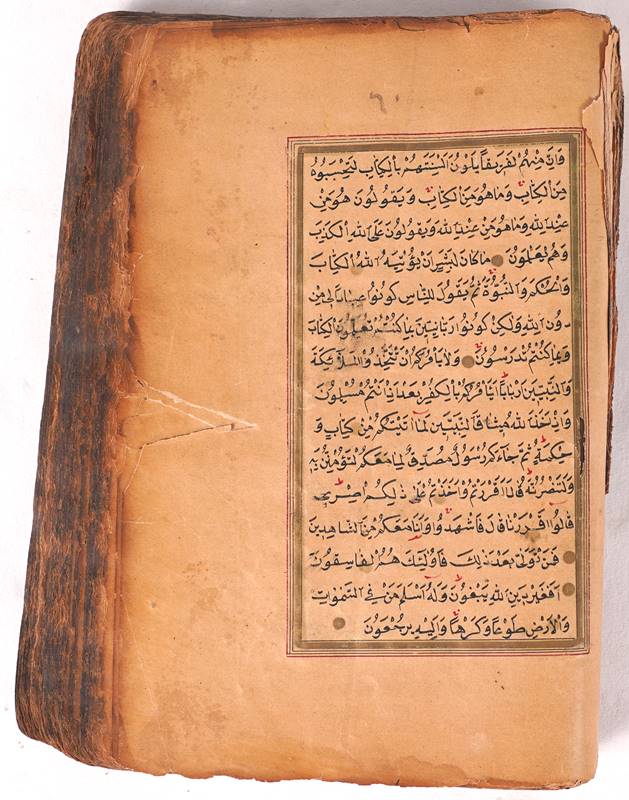 ٦٠
وَاِنَّ مِنْهُمْ لَفَرِيقاً يَلْوُنَ اَلْسِنَتَهُمْ بِالْكِتَابِ لِتَحْسَبُوهُ
مِنَ الْكِتَابِ وَمَا هُوَ مِنَ الْكِتَابِ وَيَقُولُونَ هُوَ مِنْ
عِنْدِ اللهِ وَمَا هُوَ مِنْ عِنْدِ اللهِ وَيَقُولُونَ عَلَى اللهِ الْكَذِبَ
وَهُمْ يَعْلَمُونَ مَا كَانَ لِبَشَرٍ اَنْ يُؤْتِيَهُ اللهُ الْكِتَابَ
وَالْحُكْمَ وَالنُّبُوَّةَ ثُمَّ يَقُولَ لِلنَّاسِ كُونُوا عِبَاداً لِى مِنْ
دُونِ اللهِ وَلٰكِنْ كُونُوا رَبَّانِيّٖنَ بِمَا كُنْتُمْ تُعَلِّمُونَ الْكِتَابَ
وَبِمَا كُنْتُمْ تَدْرُسُونَ وَلَا يَأْمُرَكُمْ اَنْ تَتَّخِذُوا الْمَلٰٓئِكَةَ
وَالنَّبِيّٖنَ اَرْبَاباً اَيَأْمُرُكُمْ بِالْكُفْرِ بَعْدَ اِذْ اَنْتُمْ مُسْلِمُونَ
وَاِذْ اَخَذَ اللهُ مِيثَاقَ النَّبِيّٖنَ لَمَٓا اٰتَيْتُكُمْ مِنْ كِتَابٍ وَ
حِكْمَةٍ ثُمَّ جَٓاءَكُمْ رَسُولٌ مُصَدِّقٌ لِمَا مَعَكُمْ لَتُؤْمِنُنَّ بِهِ
وَلَتَنْصُرُنَّهُ قَالَ ءَاَقْرَرْتُمْ وَاَخَذْتُمْ عَلٰى ذٰلِكُمْ اِصْرِى
قَالُوا اَقْرَرْنَا قَالَ فَاشْهَدُوا وَاَنَا مَعَكُمْ مِنَ الشَّاهِدِينَ
فَمَنْ تَوَلّٰى بَعْدَ ذٰلِكَ فَاُولٰٓئِكَ هُمُ الْفَاسِقُونَ
اَفَغَيْرَ دِينِ اللهِ يَبْغُونَ وَلَهُ اَسْلَمَ مَنْ فِى السَّمٰوَاتِ
وَالْاَرْضِ طَوْعاً وَكَرْهاً وَاِلَيْهِ يُرْجَعُونَ